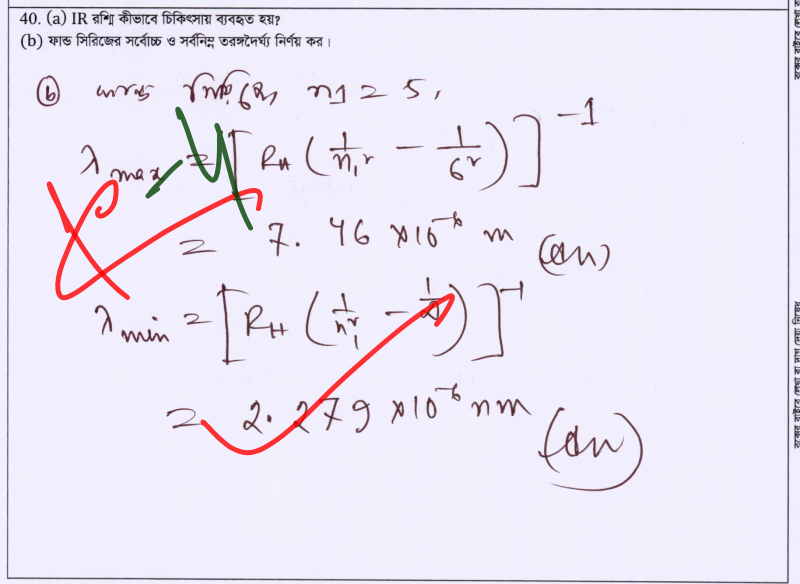 40. (a) IR রশ্মি কীভাবে চিকিৎসায় ব্যবহৃত হয়?
(b) ফান্ড সিরিজের সর্বোচ্চ ও সর্বনিম্ন তরঙ্গদৈর্ঘ্য নির্ণয় কর।
(b) ফান্ড সিরিজে, n1 = 5,
λmax = [RH (1/n1² − 1/6²)]⁻¹
= 7.46 ×10⁻⁶ m (Ans)
λmin = [RH (1/n1² − 1/α)]⁻¹
= 2.279 ×10⁻⁶ nm (Ans)